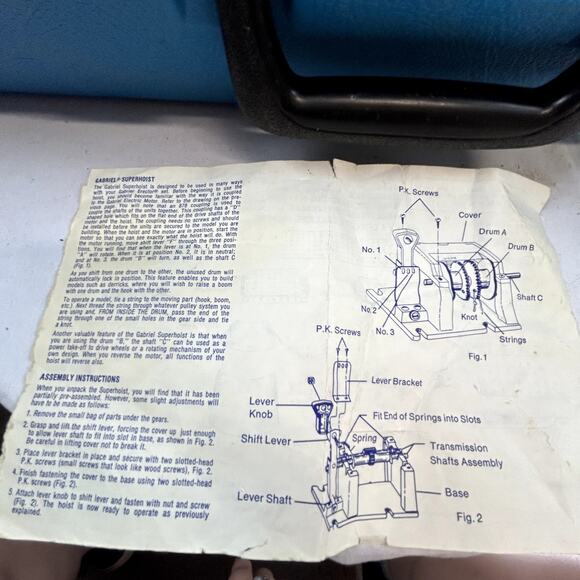 GABRIEL® SUPERHOIST
The Gabriel Superhoist is designed to be used in many ways
with your Gabriel Erector® set. Before beginning to use the
hoist, you should become familiar with the way it is coupled
to the Gabriel Electric Motor. Refer to the drawing on the pre-
vious page. You will note that an 879 coupling is used to
couple the shafts of the units together. This coupling has a "D"
shaped hole which fits on the flat end of the drive shafts of the
motor and the hoist. The coupling needs no screws and should
be installed before the units are secured to the model you are
building. When the hoist and the motor are in position, start the
motor so that you can see exactly what the hoist will do. With
the motor running, move shift lever "F" through the three posi-
tions. You will find that when the lever is at No. 1, the drum
"A" will rotate. When it is at position No. 2, it is in neutral;
and at No. 3, the drum "B" will turn, as well as the shaft C
(Fig. 1).
As you shift from one drum to the other, the unused drum will
automatically lock in position. This feature enables you to build
models such as derricks, where you will wish to raise a boom
with one drum and the hook with the other.
To operate a model, tie a string to the moving part (hook, boom,
etc.) Next thread the string through whatever pulley system you
are using and, FROM INSIDE THE DRUM, pass the end of the
string through one of the small holes in the gear side and tie
a knot.
Another valuable feature of the Gabriel Superhoist is that when
you are using the drum "B," the shaft "C" can be used as a
power take-off to drive wheels or a rotating mechanism of your
own design. When you reverse the motor, all functions of the
hoist will reverse also.
ASSEMBLY INSTRUCTIONS
When you unpack the Superhoist, you will find that it has been
partially pre-assembled. However, some slight adjustments will
have to be made as follows:
1. Remove the small bag of parts under the gears.
2. Grasp and lift the shift lever, forcing the cover up just enough
to allow lever shaft to fit into slot in base, as shown in Fig. 2.
Be careful in lifting cover not to break it.
3. Place lever bracket in place and secure with two slotted-head
P.K. screws (small screws that look like wood screws), Fig. 2.
4. Finish fastening the cover to the base using two slotted-head
P.K. screws (Fig. 2).
5. Attach lever knob to shift lever and fasten with nut and screw
(Fig. 2). The hoist is now ready to operate as previously
explained.
P.K. Screws
Cover
Drum A
Drum B
No. 1
Shaft C
No.2
No. 3
Knot
Strings
Fig.1
P.K. Screws
Lever Bracket
Lever
Knob
Fit End of Springs into Slots
Shift Lever
Spring
Transmission
Shafts Assembly
Lever Shaft
Base
Fig.2